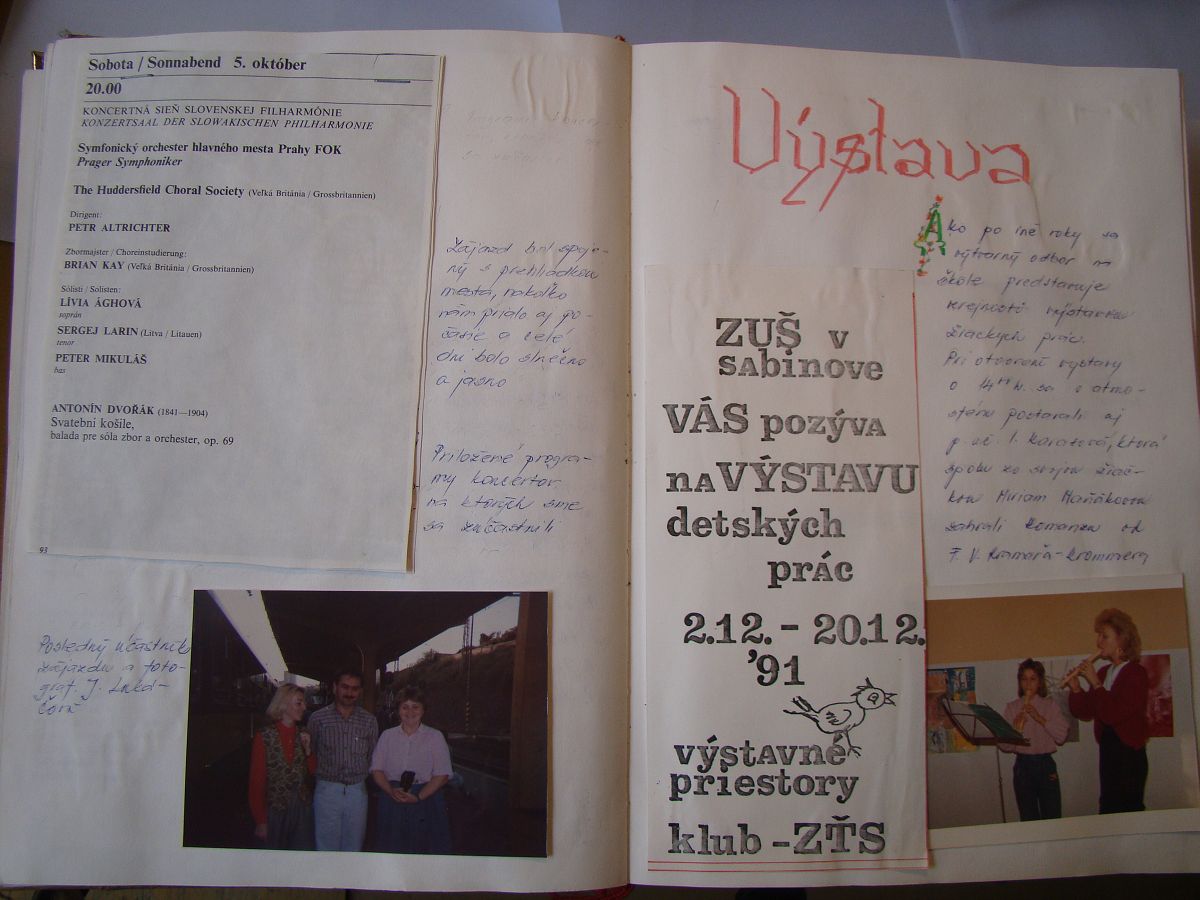 Sobota / Sonnabend 5. október
20.00
KONCERTNÁ SIEŇ SLOVENSKEJ FILHARMÓNIE
KONZERTSAAL DER SLOWAKISCHEN PHILHARMONIE
Symfonický orchester hlavného mesta Prahy FOK
Prager Symphoniker
The Huddersfield Choral Society (Veľká Británia / Grossbritannien)
Dirigent:
PETR ALTRICHTER
Zbormajster / Choreinstudierung:
BRIAN KAY (Veľká Británia / Grossbritannien)
Sólisti / Solisten:
LÍVIA ÁGHOVÁ
soprán
SERGEJ LARIN (Litva / Litauen)
tenor
PETER MIKULÁŠ
bas
ANTONÍN DVOŘÁK (1841—1904)
Svatební košile,
balada pre sóla zbor a orchester, op. 69
93
Zájazd bol spoje-
ný s prehliadkou
mesta, nakoľko
nám prialo aj po-
časie a celé
dni bolo slnečno
a jasno
Priložené progra-
my koncertov
na ktorých sme
sa zúčastnili
Posledný účastník
zájazdu a foto-
graf. J.
Výstava
Ako po iné roky sa
výtvarný odbor na
škole predstavuje
verejnosti výstavou
žiackych prác.
Pri otvorení výstavy
o 14 h. sa o atmo-
sféru postarali aj
p. uč. I. ktorá
spolu so svojou žiač-
kou Miriam
zahrali Romancu od
F. V. Kramařa-Krommera
ZUŠ v
SAbinove
VÁS pozýVA
nA VÝSTAVU
detských
prÁc
2.12. - 20.12.
'91
výstAvné
priestory
klub - ZŤS